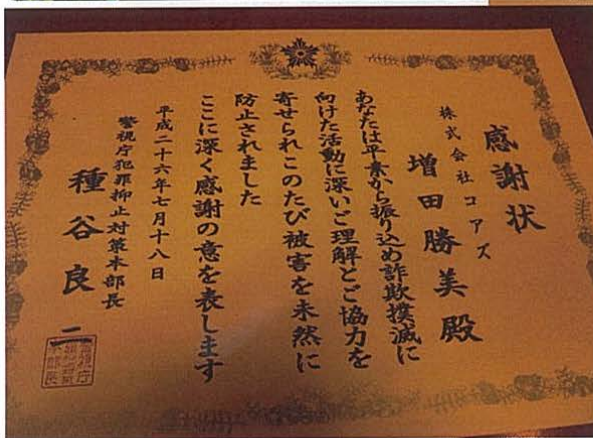 感謝状
株式会社コアズ
増田勝美殿
あなたは平素から振り込め詐欺撲滅に
向けた活動に深いご理解とご協力を
寄せられこのたび被害を未然に
防止されました
ここに深く感謝の意を表します
平成二十六年七月十八日
警視庁犯罪抑止対策本部長
種谷良二